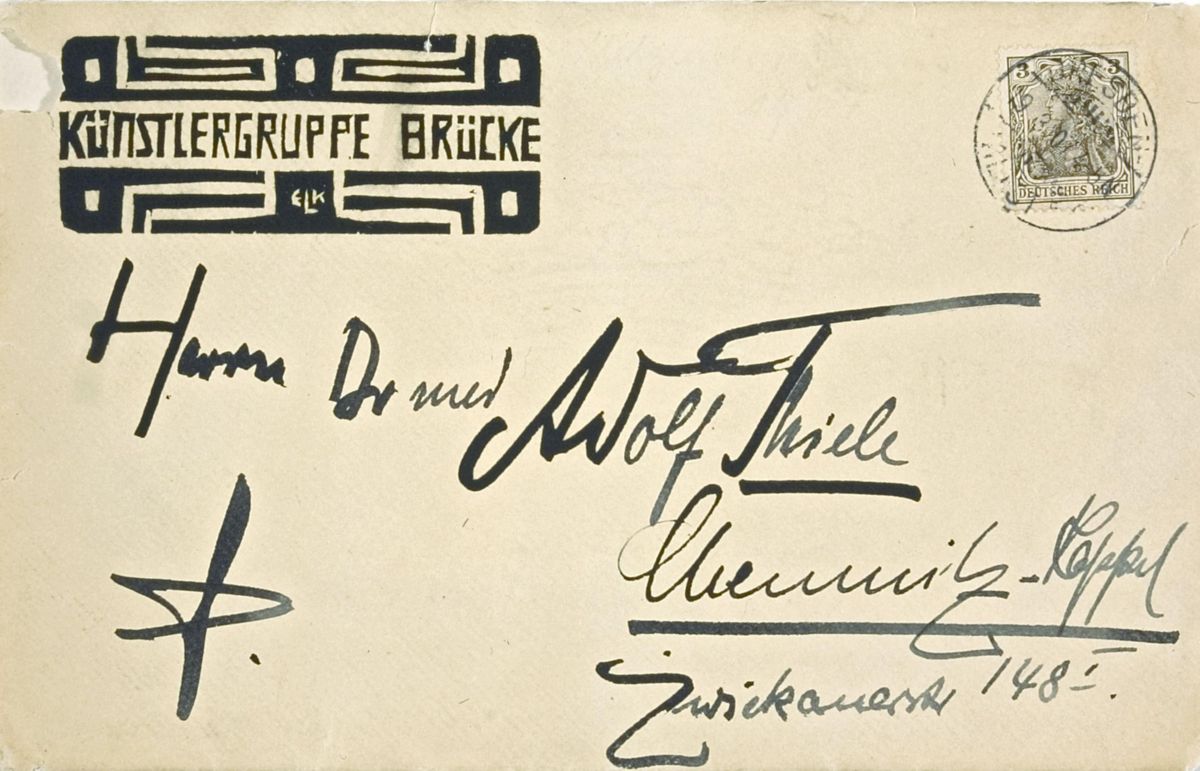 KÜNSTLERGRUPPE BRÜCKE
ELK
3 3
DEUTSCHES REICH
Herrn Dr med Adolf Thiele
Chemnitz-Kappel
Zwickauerstr 148 I.